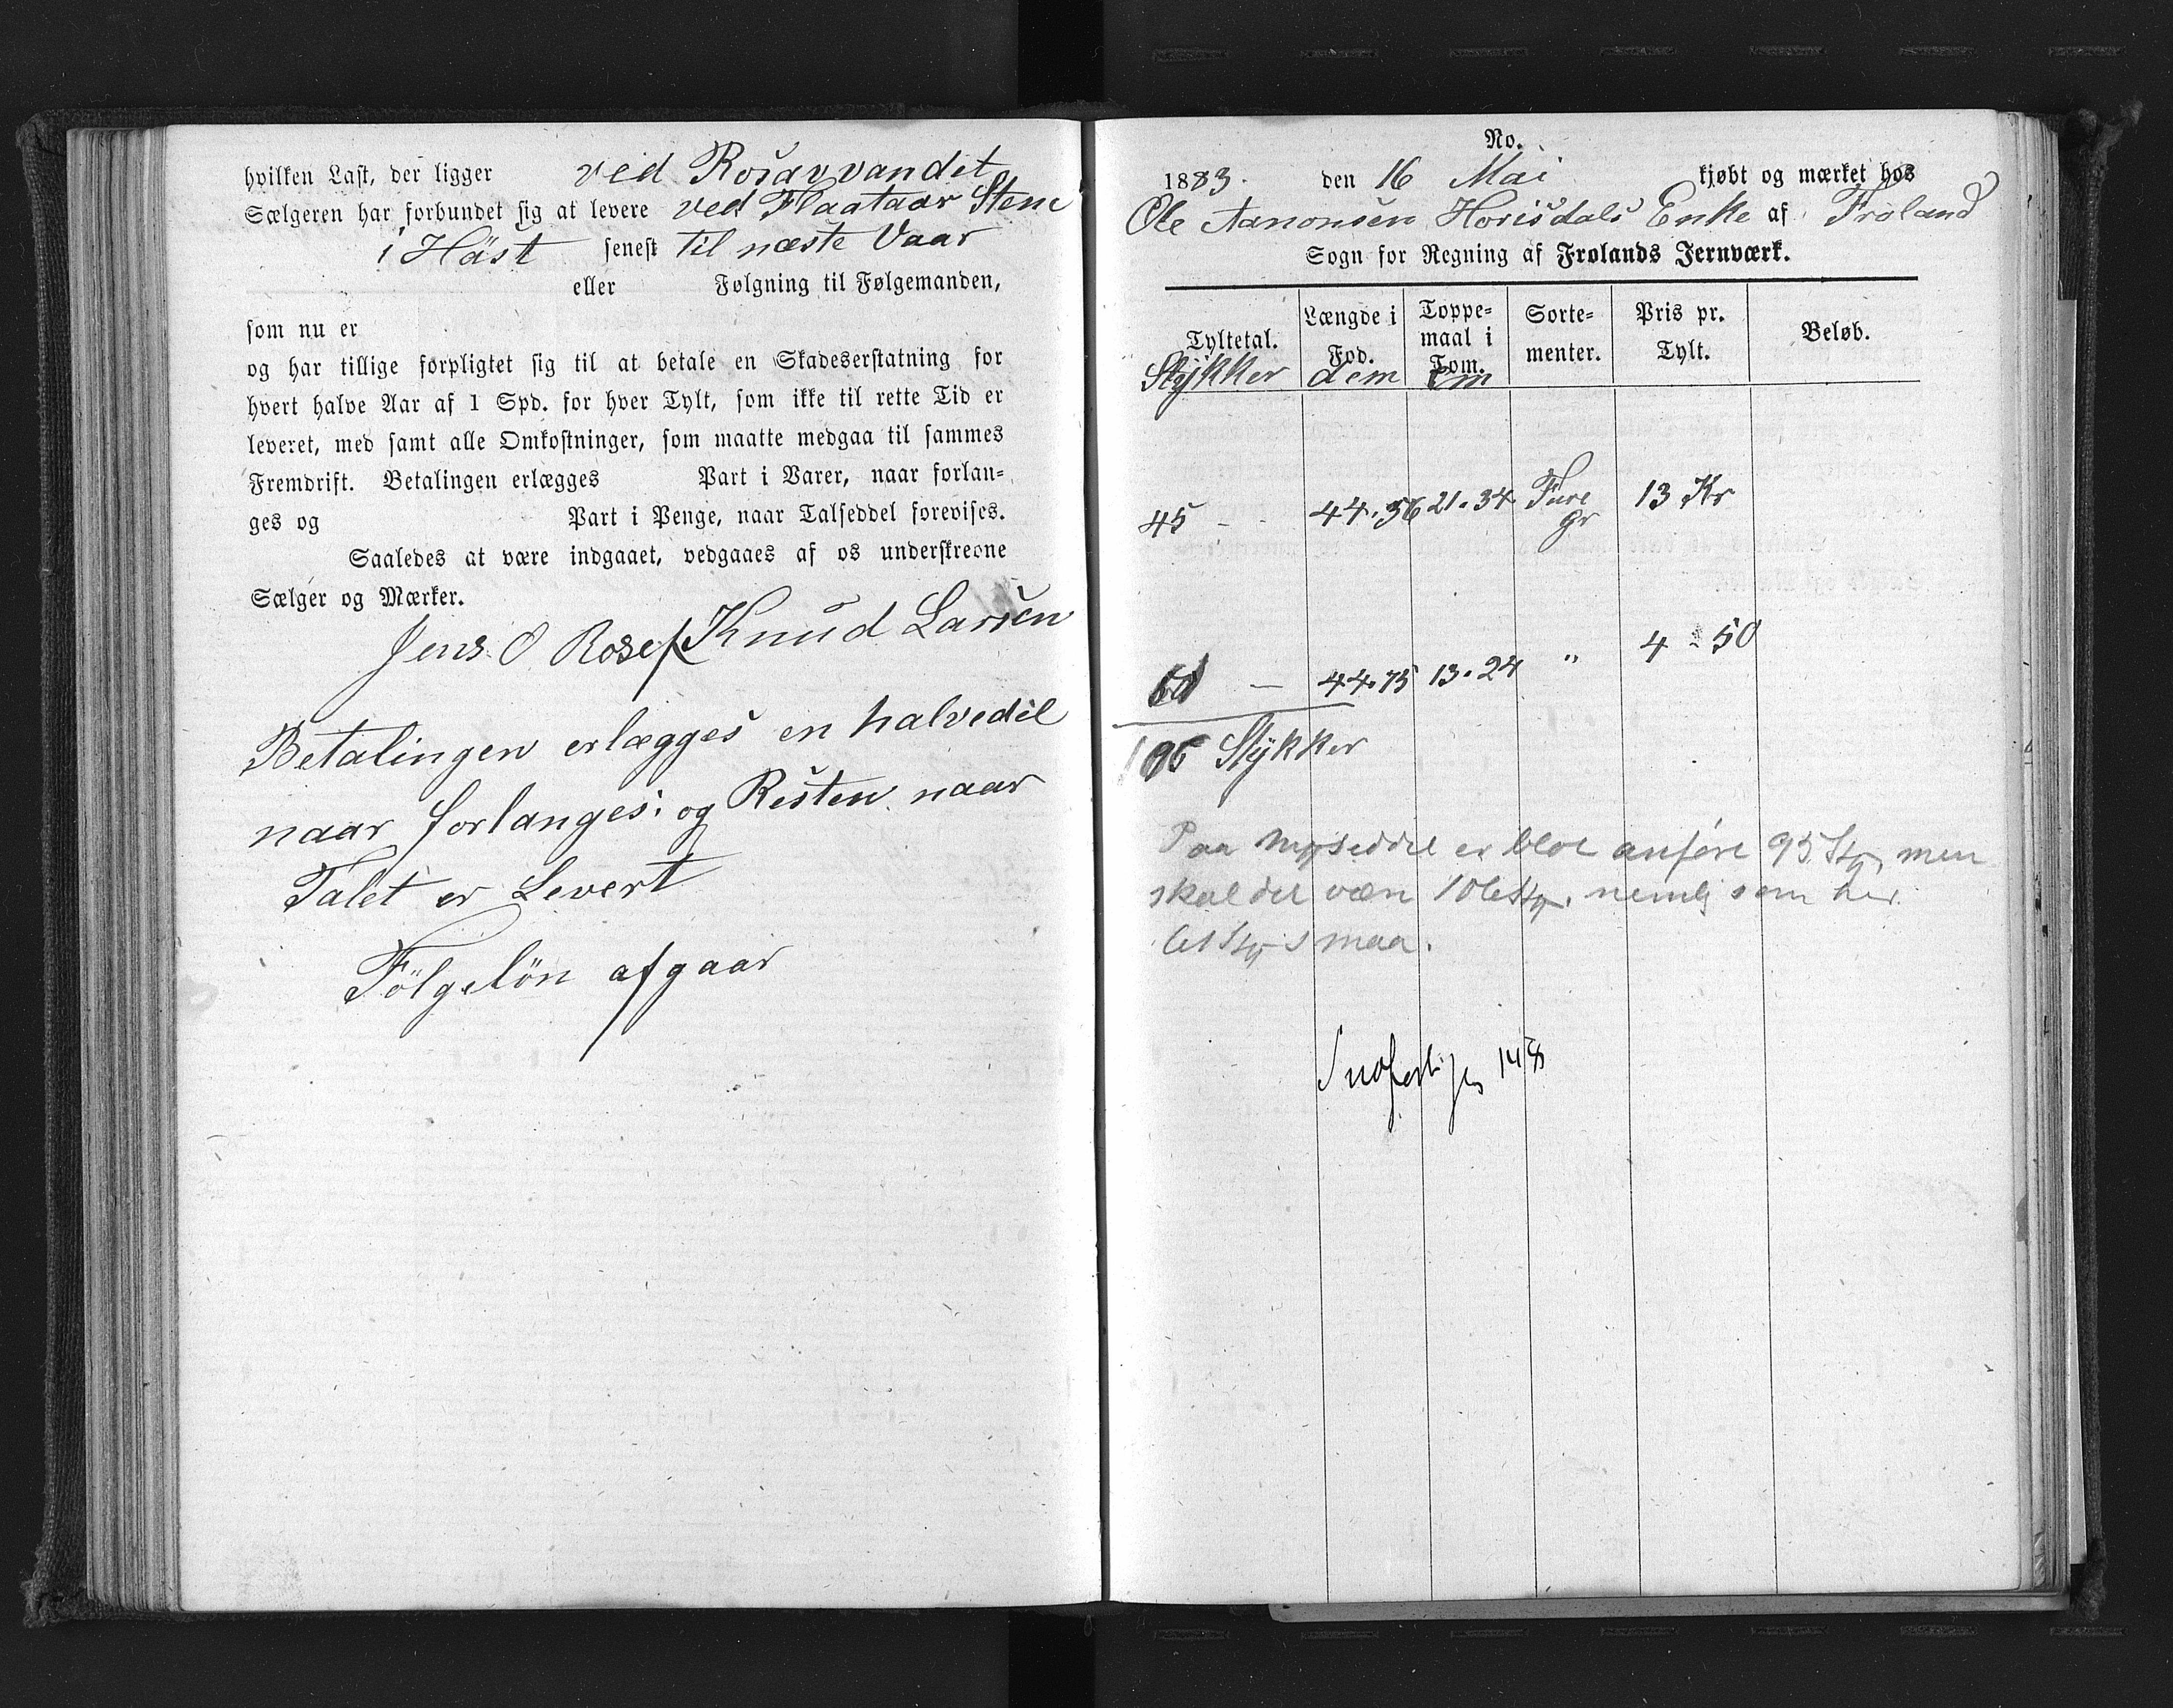 hvilken Last, der ligger ved Rosavvandet
Sælgeren har forbundet sig at levere ved Flaataar Stene
i Häst senest til næste Vaar
eller Følgning til Følgemanden,
som nu er
og har tillige forpligtet sig til at betale en Skadeserstatning for
hvert halve Aar af 1 Spd. for hver Tylt, som ikke til rette Tid er
leveret, med samt alle Omkostninger, som maatte medgaa til sammes
Fremdrift. Betalingen erlægges Part i Varer, naar forlan-
ges og Part i Penge, naar Talseddel forevises.
Saaledes at være indgaaet, vedgaaes af os underskrevne
Sælger og Mærker.
Jens O Rosef Knud Larsen
Betalingen erlægges en halvedel
naar forlanges: og Resten naar
Talet er Levert
Fölgelön afgaar
No.
1883. den 16 Mai kjøbt og mærket hos
Ole Aanonsen Horisdals Enke af Froland
Sogn for Regning af Frolands Jernværk.
Tyltetal. Længde i Fod. Toppe-maal i Tom. Sorte-menter. Pris pr. Tylt. Beløb.
Stÿkker dem Cm
45 - - 44.56 21.34 Fure gr 13 Kr
61 — 44.75 13.24 " 4 - 50
106 Stÿkker
Paa seddel er blot anføre 95 Sty men
skal det være 106 Sty. nemlig som her
61 Sty smaa.
14/8